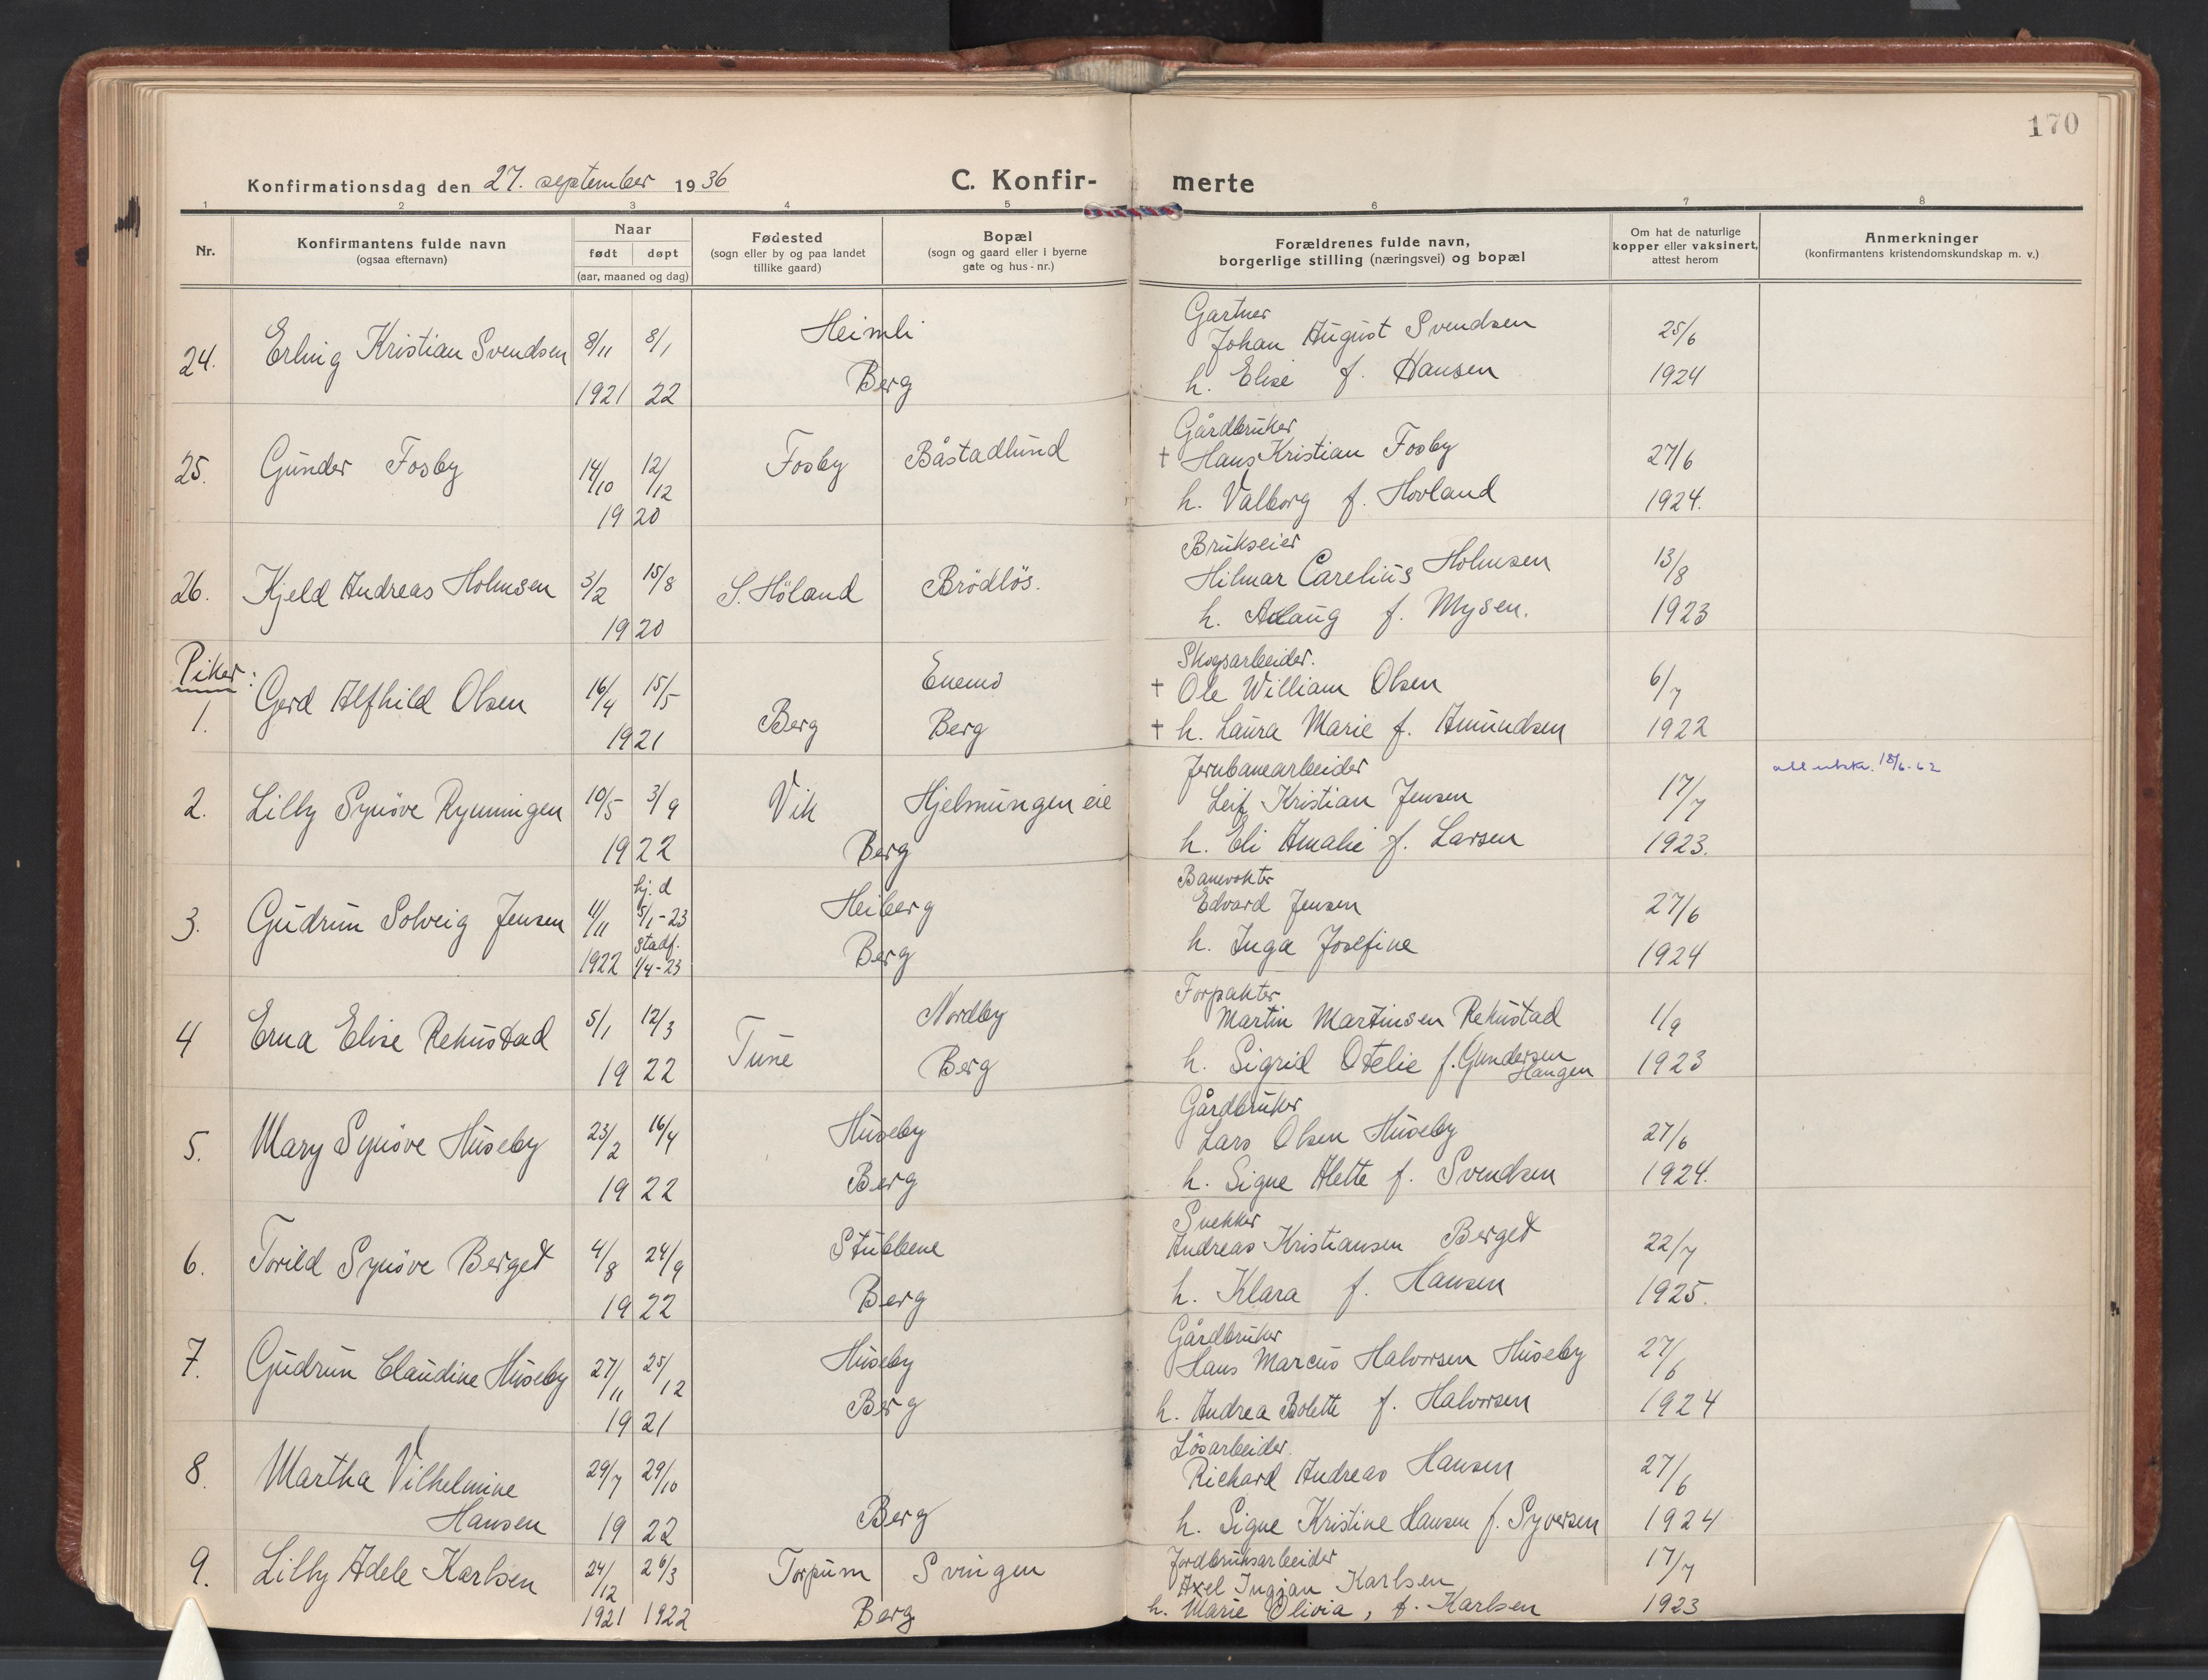 170
Konfirmationsdag den 27. september 1936
C. Konfir- merte
1 2 3 4 5 6 7 8
Nr.
Konfirmantens fulde navn
(ogsaa efternavn)
Naar
født døpt
(aar, maaned og dag)
Fødested
(sogn eller by og paa landet
tillike gaard)
Bopæl
(sogn og gaard eller i byerne
gate og hus-nr.)
Forældrenes fulde navn,
borgerlige stilling (næringsvei) og bopæl
Om hat de naturlige
kopper eller vaksinert,
attest herom
Anmerkninger
(konfirmantens kristendomskundskap m. v.)
Gartner
24. Erling Kristian Svendsen 8/11 8/1 Heimli Johan August Svendsen 25/6
1921 22 Berg h. Elise f. Hansen 1924
Gårdbruker
25. Gunder Fosby 14/10 12/12 Fosby Båstadlund † Hans Kristian Fosby 27/6
1920 h. Valborg f. Hovland 1924.
Brukseier
26. Kjeld Andreas Holmsen 3/2 15/8 S. Höland Brödlös. Hilmar Carelius Holmsen 13/8
1920 h. Aslaug f. Mysen. 1923
Piker:
Skogsarbeider.
1. Gerd Alfhild Olsen 16/4 15/5 Enemo † Ole William Olsen 6/7
1921 Berg Berg † h. Laura Marie f. Amundsen 1922
Jernbanearbeider
2. Lilly Synöve Rynningen 10/5 3/9 Vik Hjelmungen eie Leif Kristian Jensen 17/7 18/6-62
1922 Berg h. Eli Amalie f. Larsen 1923.
hj. d Banevokter
3. Gudrun Solveig Jensen 4/11 5/1-23 Heiberg Edvard Jensen 27/6
stadf.
1922 1/4-23 Berg h. Inga Josefine 1924
Forpakter
4 Erna Elise Rekustad 5/1 12/3 Tune Nordby Martin Martinsen Rekustad 1/9
1922 Berg h. Sigrid Otelie f. Gundersen 1923
Haugen
Gårdbruker
5. Mary Synöve Huseby 23/2 16/4 Huseby Lars Olsen Huseby 27/6
1922 Berg h. Signe Alette f. Svendsen 1924.
Snekker
6. Torild Synöve Berget 4/8 24/9 Stubbene Andreas Kristiansen Berget 22/7
1922 Berg h. Klara f. Hansen 1925.
Gårdbruker
7. Gudrun Claudine Huseby 27/11 25/12 Huseby Hans Marcus Halvorsen Huseby 27/6
1921 Berg h. Andrea Bolette f. Halvorsen 1924
Lösarbeider.
8. Martha Vilhelmine 29/7 29/10 Richard Andreas Hansen 27/6
Hansen 1922 Berg h. Signe Kristine Hansen f. Syversen 1924
Jordbruksarbeider
9. Lilly Adele Karlsen 24/12 26/3 Torpum Svingen Axel Ingjan Karlsen 17/7
1921 1922 Berg h. Marie Olivia, f. Karlsen 1923